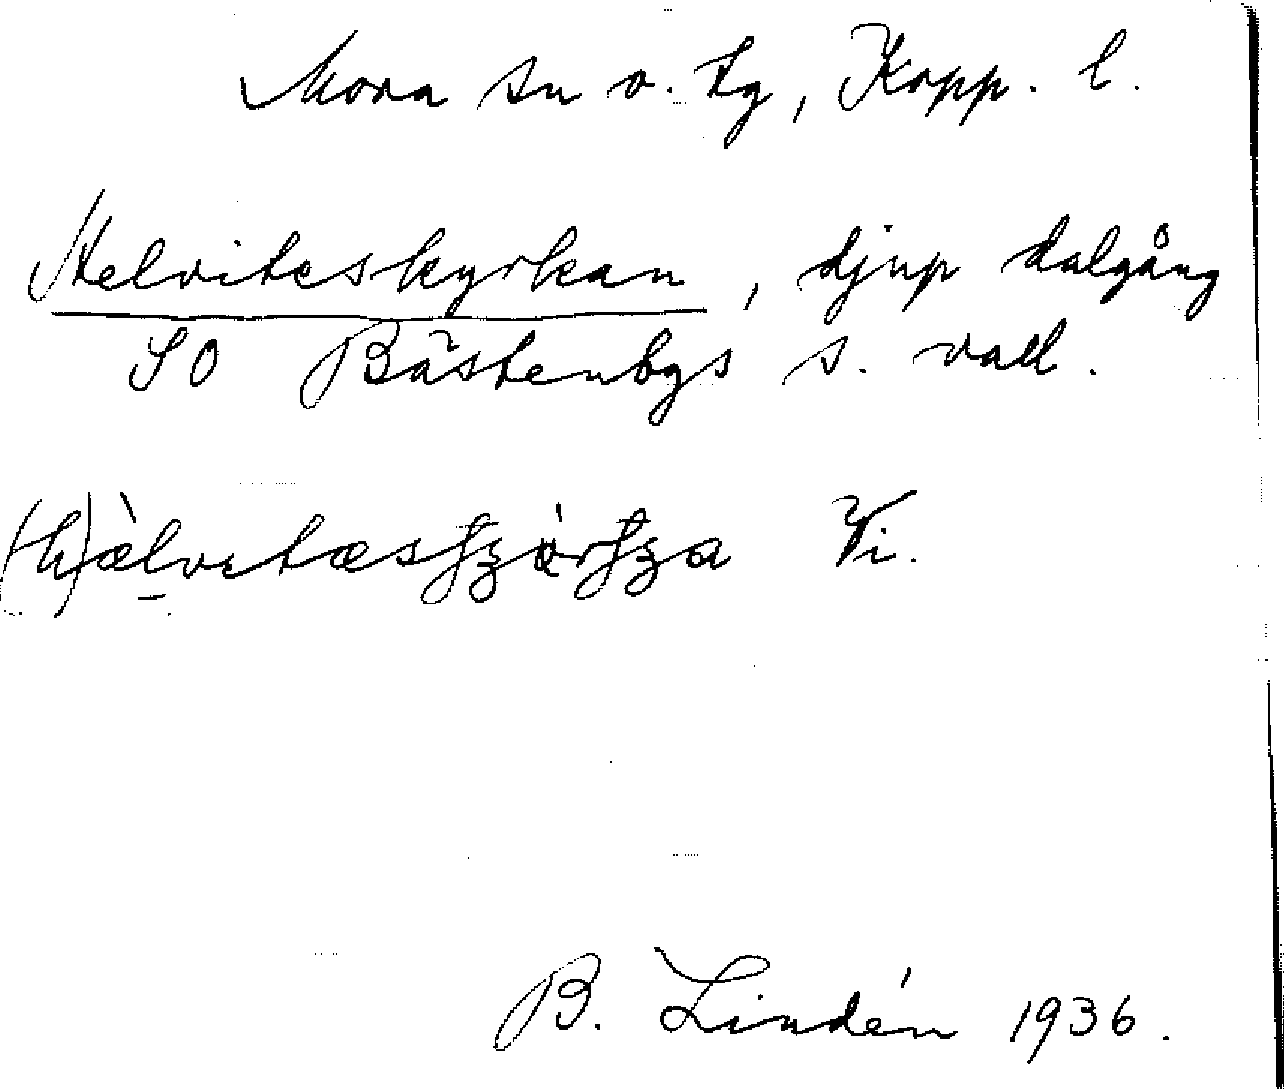 Mora sn o. tg, Kopp. l.
Helviteskyrkan, djup dalgång
SO Bästenbgs s. vall.
Vi.
B. Lindén 1936.